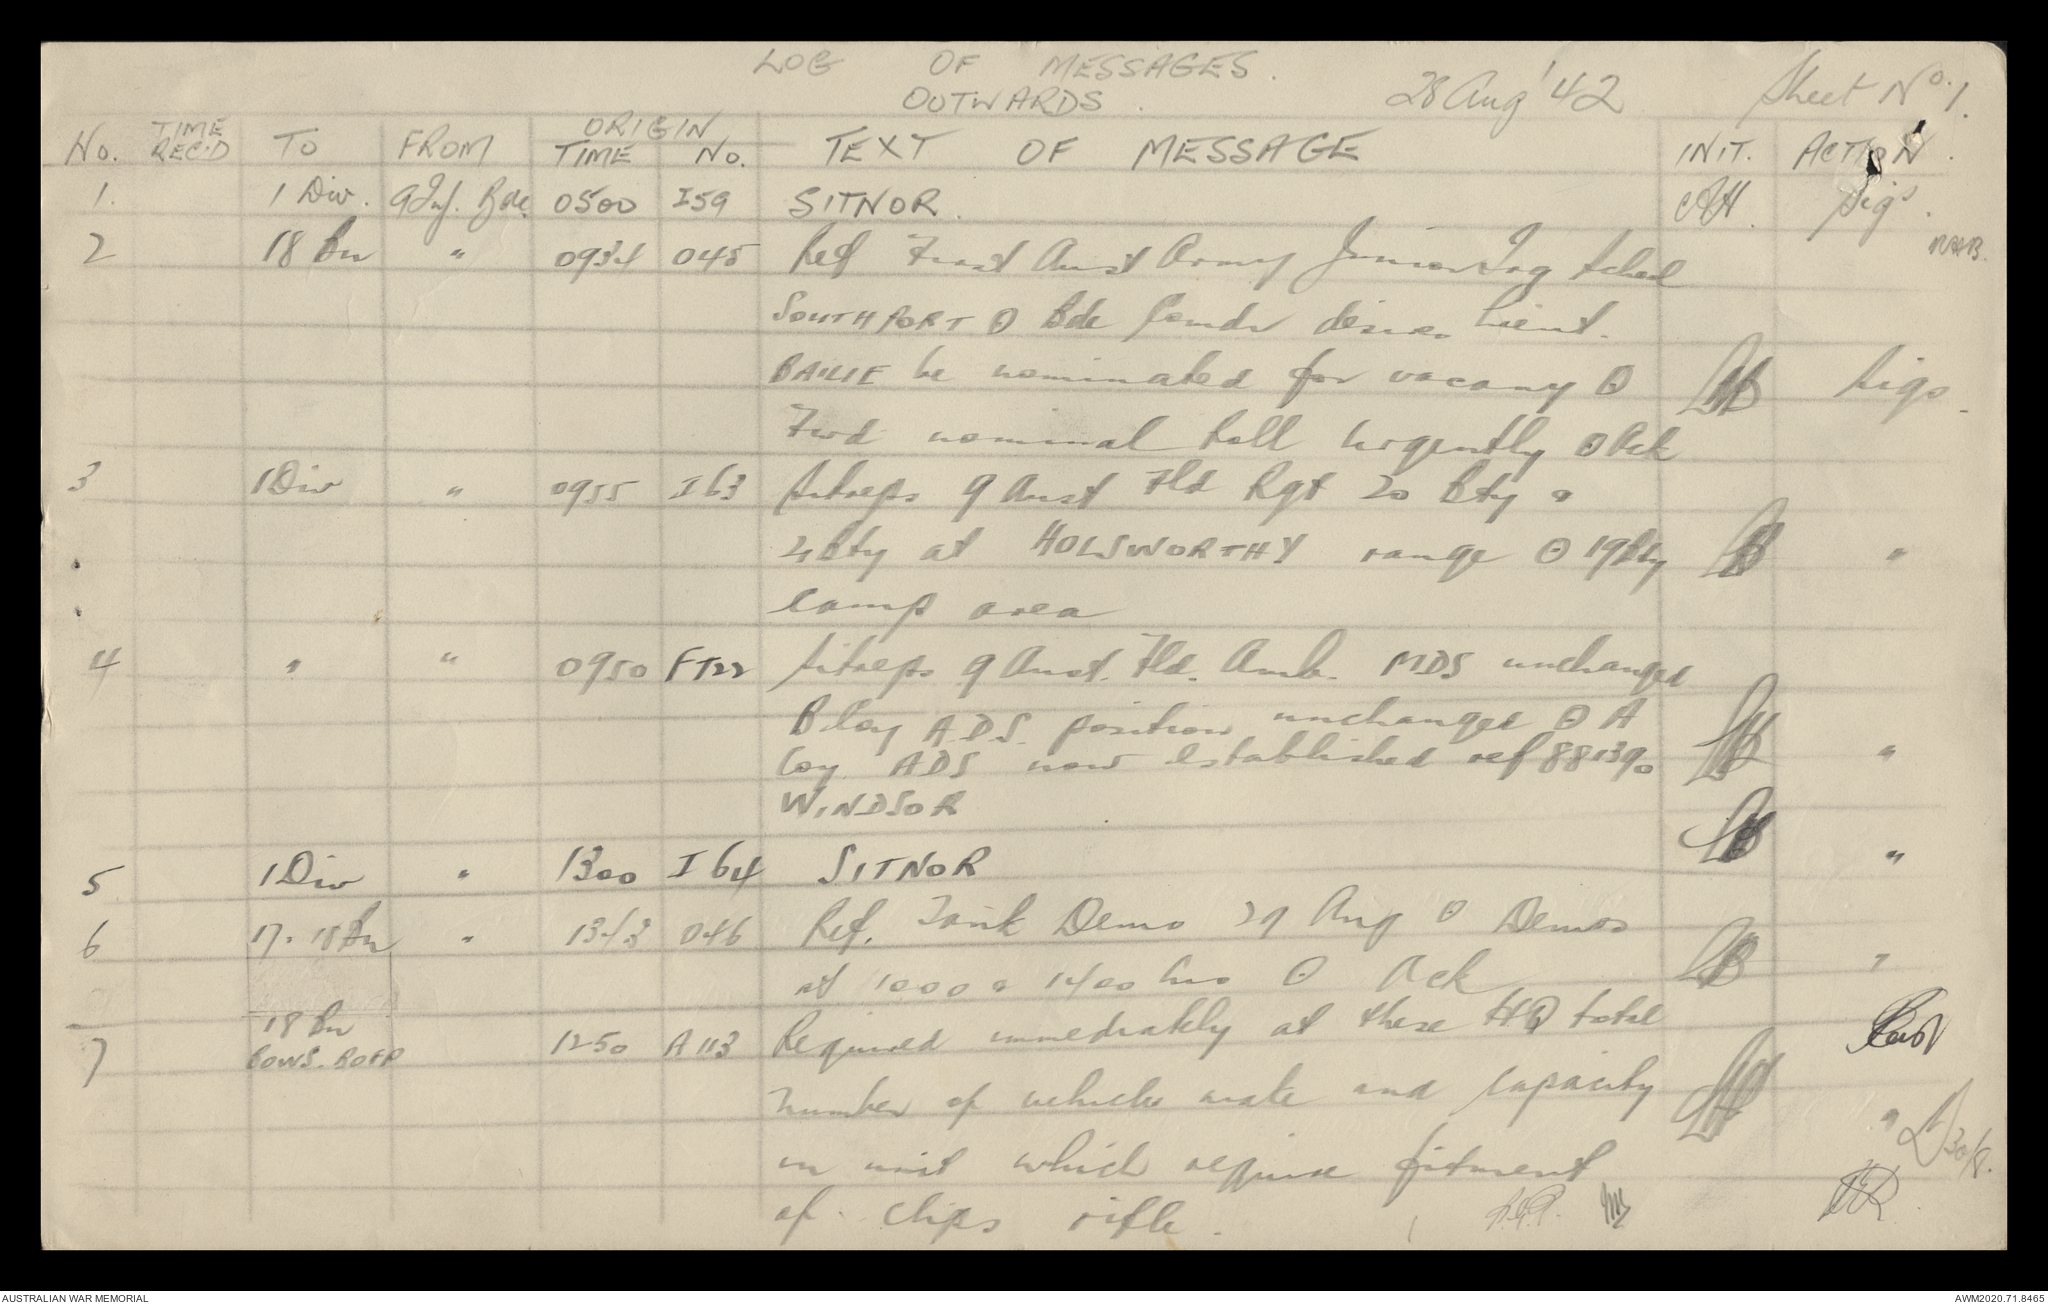 LOG OF MESSAGES.
OUTWARDS.
28 Aug '42
Sheet No. 1.
No. TIME REC'D TO FROM ORIGIN TIME No. TEXT OF MESSAGE INIT. ACTION.
1. 1 Div. 9 Inf. Bde. 0500 I59 SITNOR. Sigs.
2 18 Bn " 0934 045 Ref First Aust Army Junior Tng School
SOUTHPORT ⊙ Bde Comdr desires Lieut.
BAILIE be nominated for vacancy ⊙ Sigs
Fwd nominal roll urgently ⊙ Ack
3 1 Div " 0955 I63 Sitreps 9 Aust Fld Rgt 20 Bty &
Bty at HOLSWORTHY range ⊙ 19 Bty "
camp area
4 " " 0950 FT22 Sitreps 9 Aust. Fld. Amb. MDS unchanged
B Coy A.D.S. position unchanged ⊙ A
Coy ADS now established ref 881390 "
WINDSOR
5 1 Div " 1300 I64 SITNOR "
6 17 - 18 Bn " 1343 046 Ref. Tank Demo 29 Aug ⊙ Demos
at 1000 & 1400 hrs ⊙ Ack "
7 18 Bn 1250 A113 Required immediately at these HQ total
number of vehicles make and capacity "
in unit which require fitment 30/8.
of clips rifle.
AUSTRALIAN WAR MEMORIAL
AWM2020.71.8465